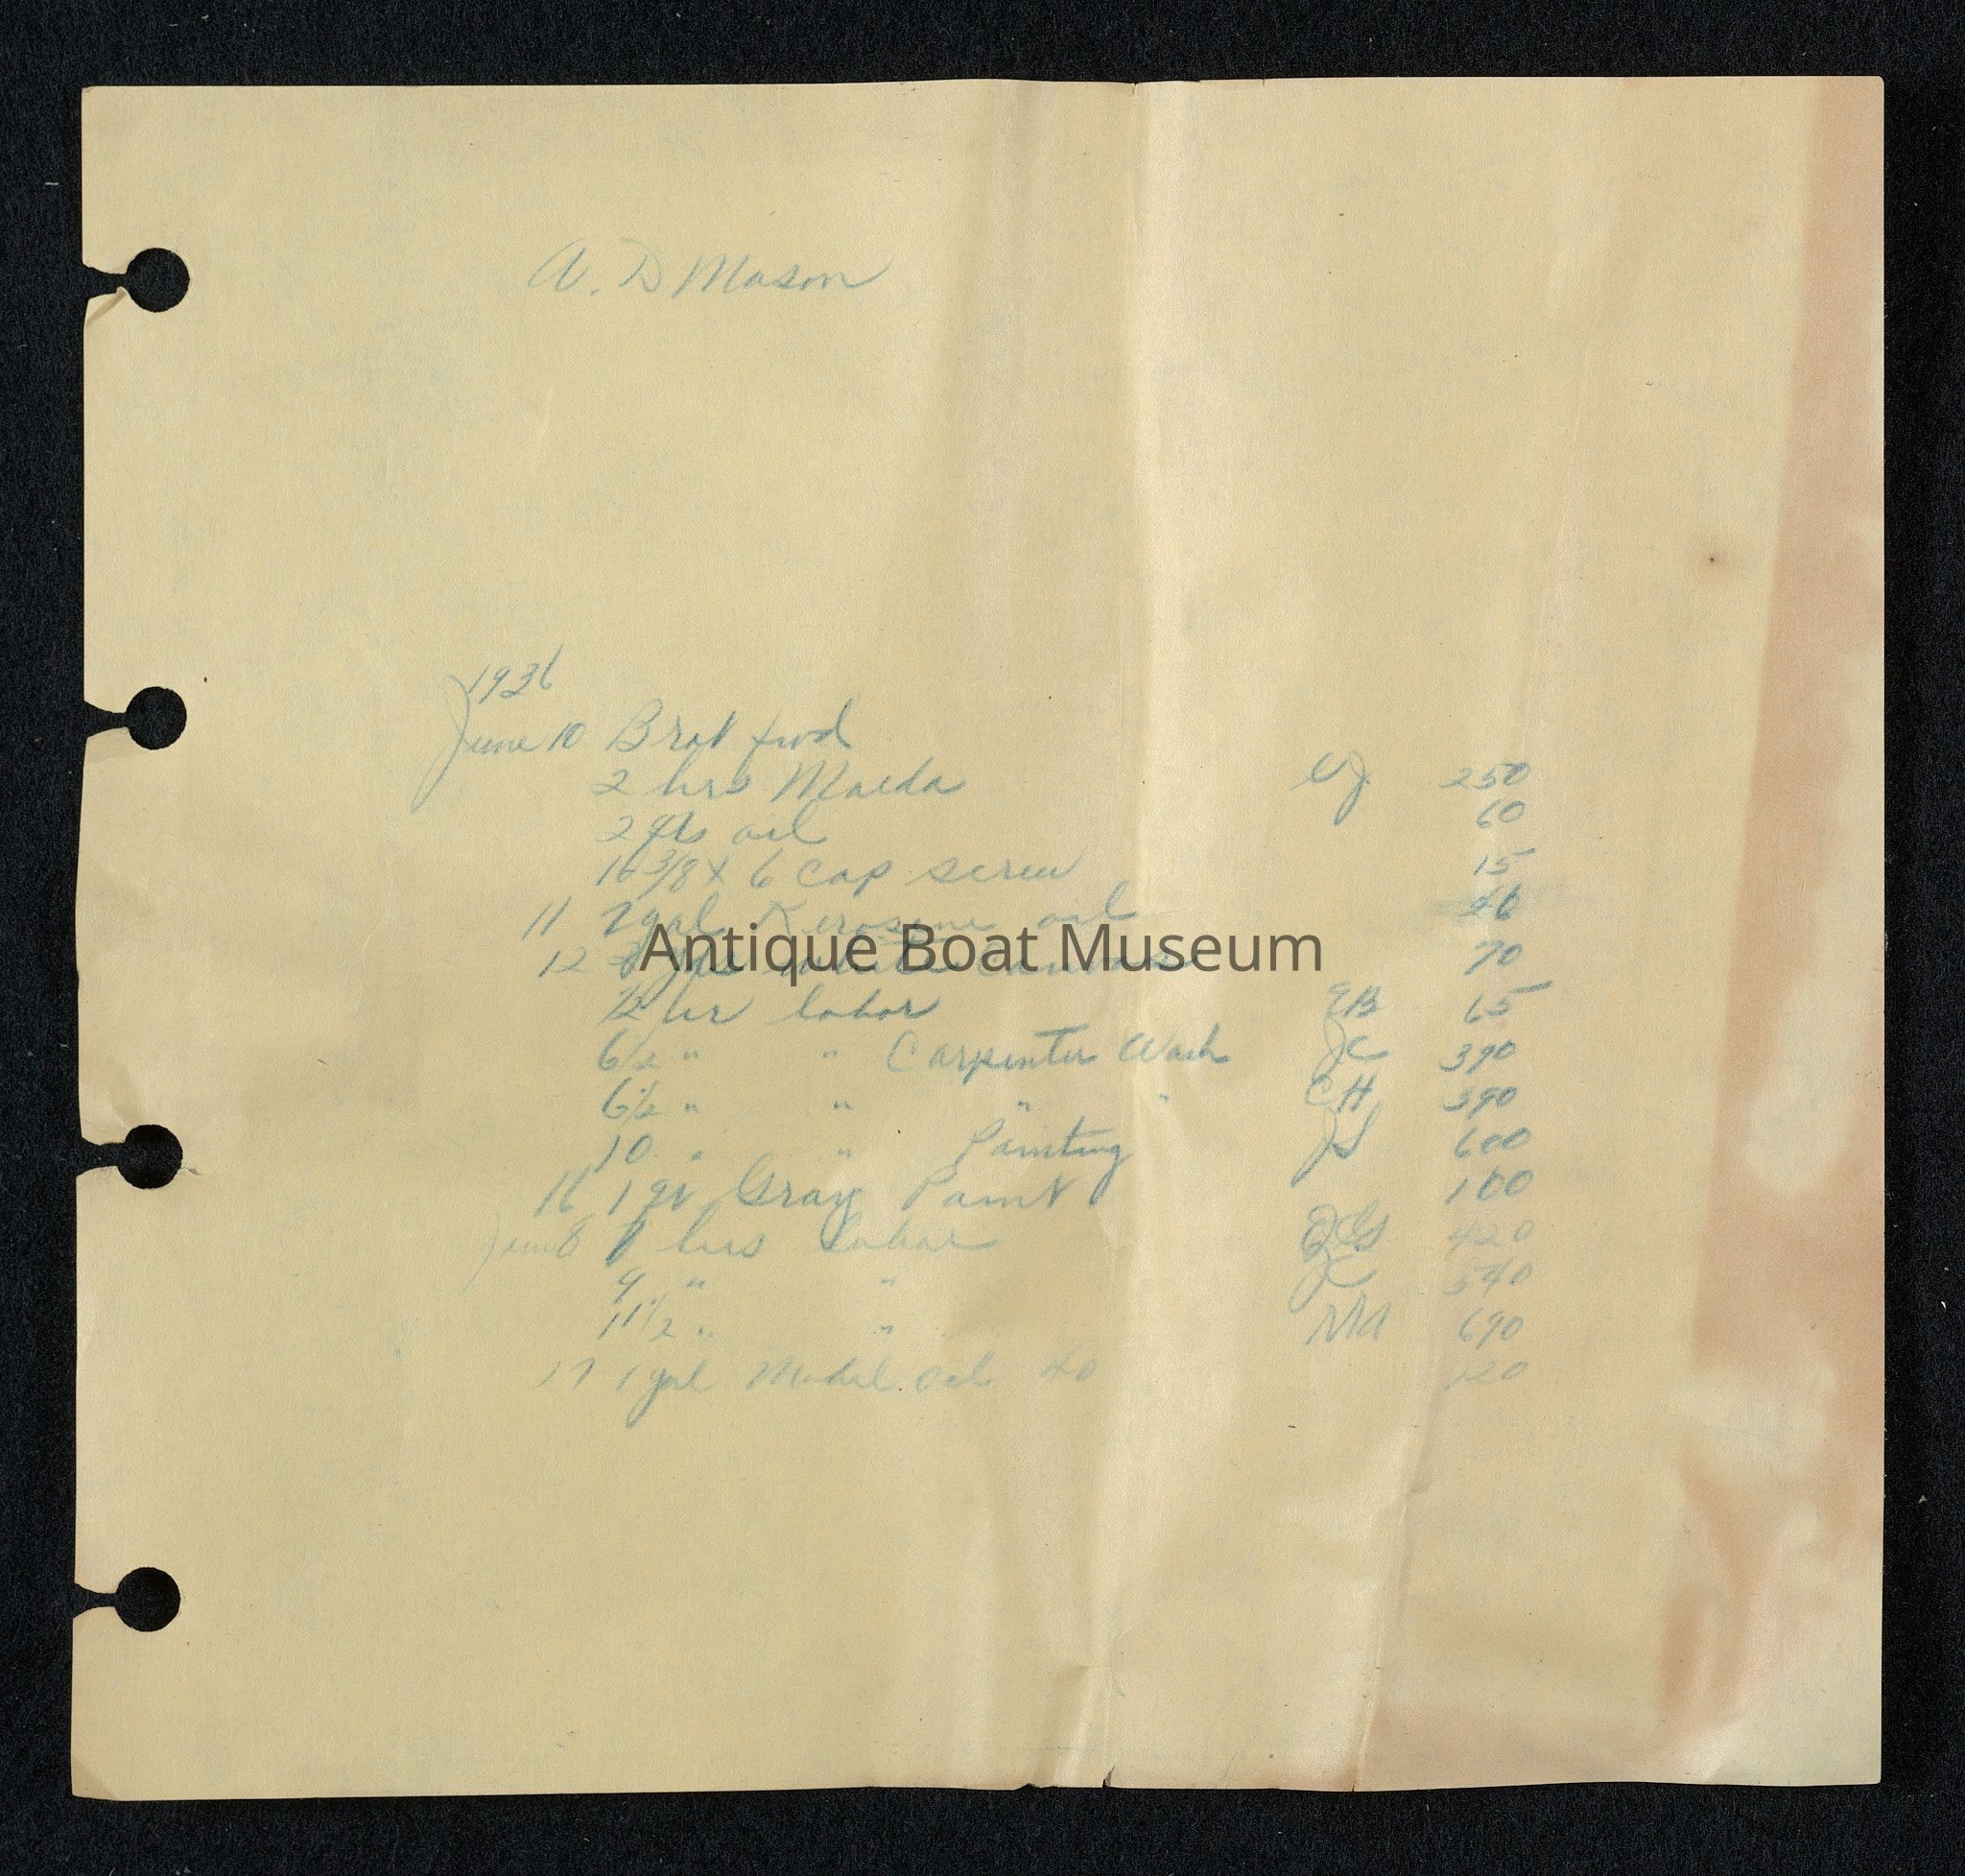 A. D Mason
1936
June 10 Brot fwd
2 hrs Maeda CJ 250
2 qts oil 60
16 3/8 x 6 cap screw 15
11 2 gal Kerosene oil
12 70
Antique Boat Museum
hr labor EB 65
6 1/2 " " Carpenter Work JC 390
6 1/2 " " " " CH 390
10 " " Painting JS 600
16 1 qt Gray Paint 100
June 8 hrs labor 420
9 " " JC 540
11 1/2 " " MA 690
17 1 gal Mobil Oil 40